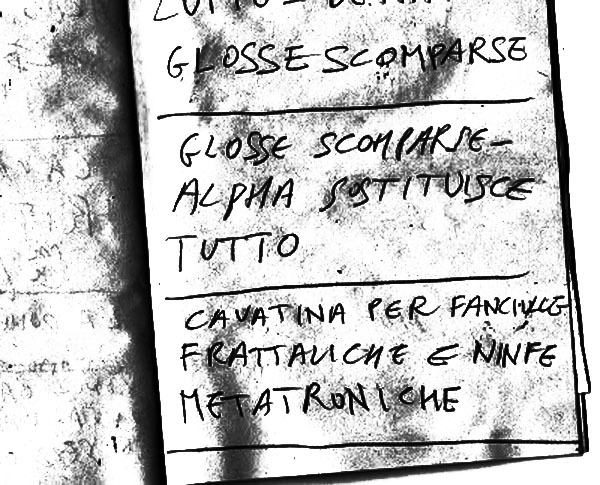 GLOSSE SCOMPARSE
GLOSSE SCOMPARSE-
ALPHA SOSTITUISCE
TUTTO
CAVATINA PER FANCIULLE
FRATTALICHE E NINFE
METATRONICHE